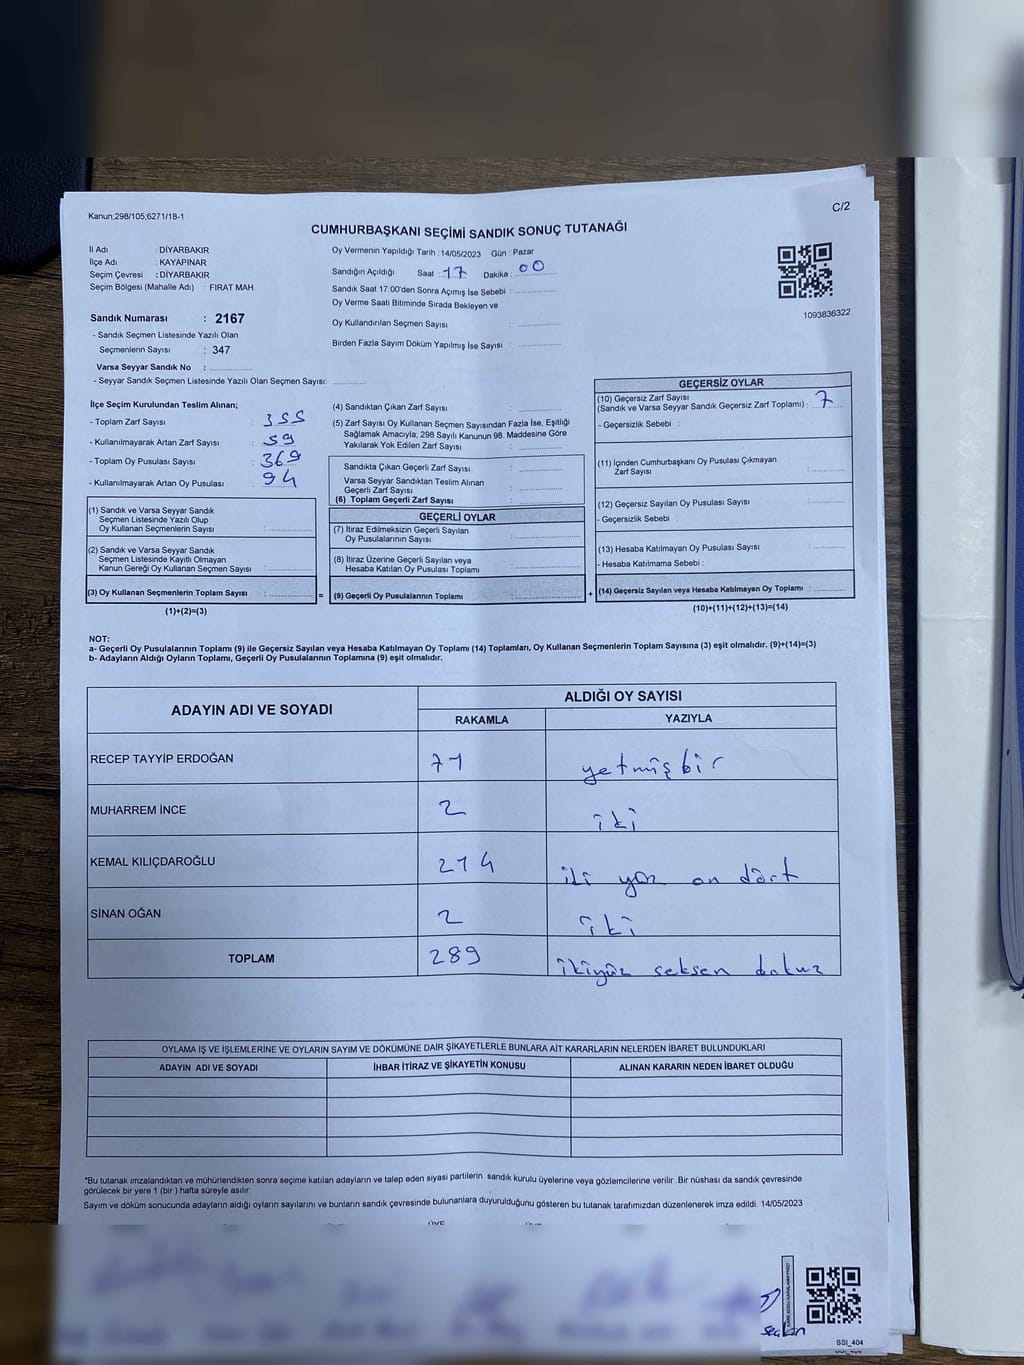 Kanun;298/105;6271/18-1
C/2
CUMHURBAŞKANI SEÇİMİ SANDIK SONUÇ TUTANAĞI
İl Adı : DİYARBAKIR
İlçe Adı : KAYAPINAR
Seçim Çevresi : DİYARBAKIR
Seçim Bölgesi (Mahalle Adı) : FIRAT MAH.
Sandık Numarası : 2167
- Sandık Seçmen Listesinde Yazılı Olan
Seçmenlerin Sayısı : 347
Varsa Seyyar Sandık No :
- Seyyar Sandık Seçmen Listesinde Yazılı Olan Seçmen Sayısı:
Oy Vermenin Yapıldığı Tarih :14/05/2023 Gün : Pazar
Sandığın Açıldığı Saat : 17 Dakika : 00
Sandık Saat 17:00'den Sonra Açımış İse Sebebi :
Oy Verme Saati Bitiminde Sırada Bekleyen ve
Oy Kullandırılan Seçmen Sayısı :
Birden Fazla Sayım Döküm Yapılmış İse Sayısı :
1093836322
İlçe Seçim Kurulundan Teslim Alınan;
- Toplam Zarf Sayısı : 355
- Kullanılmayarak Artan Zarf Sayısı : 59
- Toplam Oy Pusulası Sayısı : 369
- Kullanılmayarak Artan Oy Pusulası : 94
(1) Sandık ve Varsa Seyyar Sandık
Seçmen Listesinde Yazılı Olup
Oy Kullanan Seçmenlerin Sayısı :
(2) Sandık ve Varsa Seyyar Sandık
Seçmen Listesinde Kayıtlı Olmayan
Kanun Gereği Oy Kullanan Seçmen Sayısı :
(3) Oy Kullanan Seçmenlerin Toplam Sayısı :
(1)+(2)=(3)
(4) Sandıktan Çıkan Zarf Sayısı :
(5) Zarf Sayısı Oy Kullanan Seçmen Sayısından Fazla İse, Eşitliği
Sağlamak Amacıyla; 298 Sayılı Kanunun 98. Maddesine Göre
Yakılarak Yok Edilen Zarf Sayısı :
Sandıkta Çıkan Geçerli Zarf Sayısı :
Varsa Seyyar Sandıktan Teslim Alınan
Geçerli Zarf Sayısı :
(6) Toplam Geçerli Zarf Sayısı :
GEÇERLİ OYLAR
(7) İtiraz Edilmeksizin Geçerli Sayılan
Oy Pusulalarının Sayısı :
(8) İtiraz Üzerine Geçerli Sayılan veya
Hesaba Katılan Oy Pusulası Toplamı :
= (9) Geçerli Oy Pusulalarının Toplamı :
GEÇERSİZ OYLAR
(10) Geçersiz Zarf Sayısı
(Sandık ve Varsa Seyyar Sandık Geçersiz Zarf Toplamı) : 7
- Geçersizlik Sebebi :
(11) İçinden Cumhurbaşkanı Oy Pusulası Çıkmayan
Zarf Sayısı :
(12) Geçersiz Sayılan Oy Pusulası Sayısı :
- Geçersizlik Sebebi :
(13) Hesaba Katılmayan Oy Pusulası Sayısı :
- Hesaba Katılmama Sebebi :
+ (14) Geçersiz Sayılan veya Hesaba Katılmayan Oy Toplamı :
(10)+(11)+(12)+(13)=(14)
NOT:
a- Geçerli Oy Pusulalarının Toplamı (9) ile Geçersiz Sayılan veya Hesaba Katılmayan Oy Toplamı (14) Toplamları, Oy Kullanan Seçmenlerin Toplam Sayısına (3) eşit olmalıdır. (9)+(14)=(3)
b- Adayların Aldığı Oyların Toplamı, Geçerli Oy Pusulalarının Toplamına (9) eşit olmalıdır.
ADAYIN ADI VE SOYADI
ALDIĞI OY SAYISI
RAKAMLA YAZIYLA
RECEP TAYYİP ERDOĞAN 71 yetmiş bir
MUHARREM İNCE 2 iki
KEMAL KILIÇDAROĞLU 214 iki yüz on dört
SİNAN OĞAN 2 iki
TOPLAM 289 ikiyüz seksen dokuz
OYLAMA İŞ VE İŞLEMLERİNE VE OYLARIN SAYIM VE DÖKÜMÜNE DAİR ŞİKAYETLERLE BUNLARA AİT KARARLARIN NELERDEN İBARET BULUNDUKLARI
ADAYIN ADI VE SOYADI İHBAR İTİRAZ VE ŞİKAYETİN KONUSU ALINAN KARARIN NEDEN İBARET OLDUĞU
*Bu tutanak imzalandıktan ve mühürlendikten sonra seçime katılan adayların ve talep eden siyasi partilerin sandık kurulu üyelerine veya gözlemcilerine verilir .Bir nüshası da sandık çevresinde
görülecek bir yere 1 (bir ) hafta süreyle asılır.
Sayım ve döküm sonucunda adayların aldığı oyların sayılarını ve bunların sandık çevresinde bulunanlara duyurulduğunu gösteren bu tutanak tarafımızdan düzenlenerek imza edildi. 14/05/2023
SSI_404